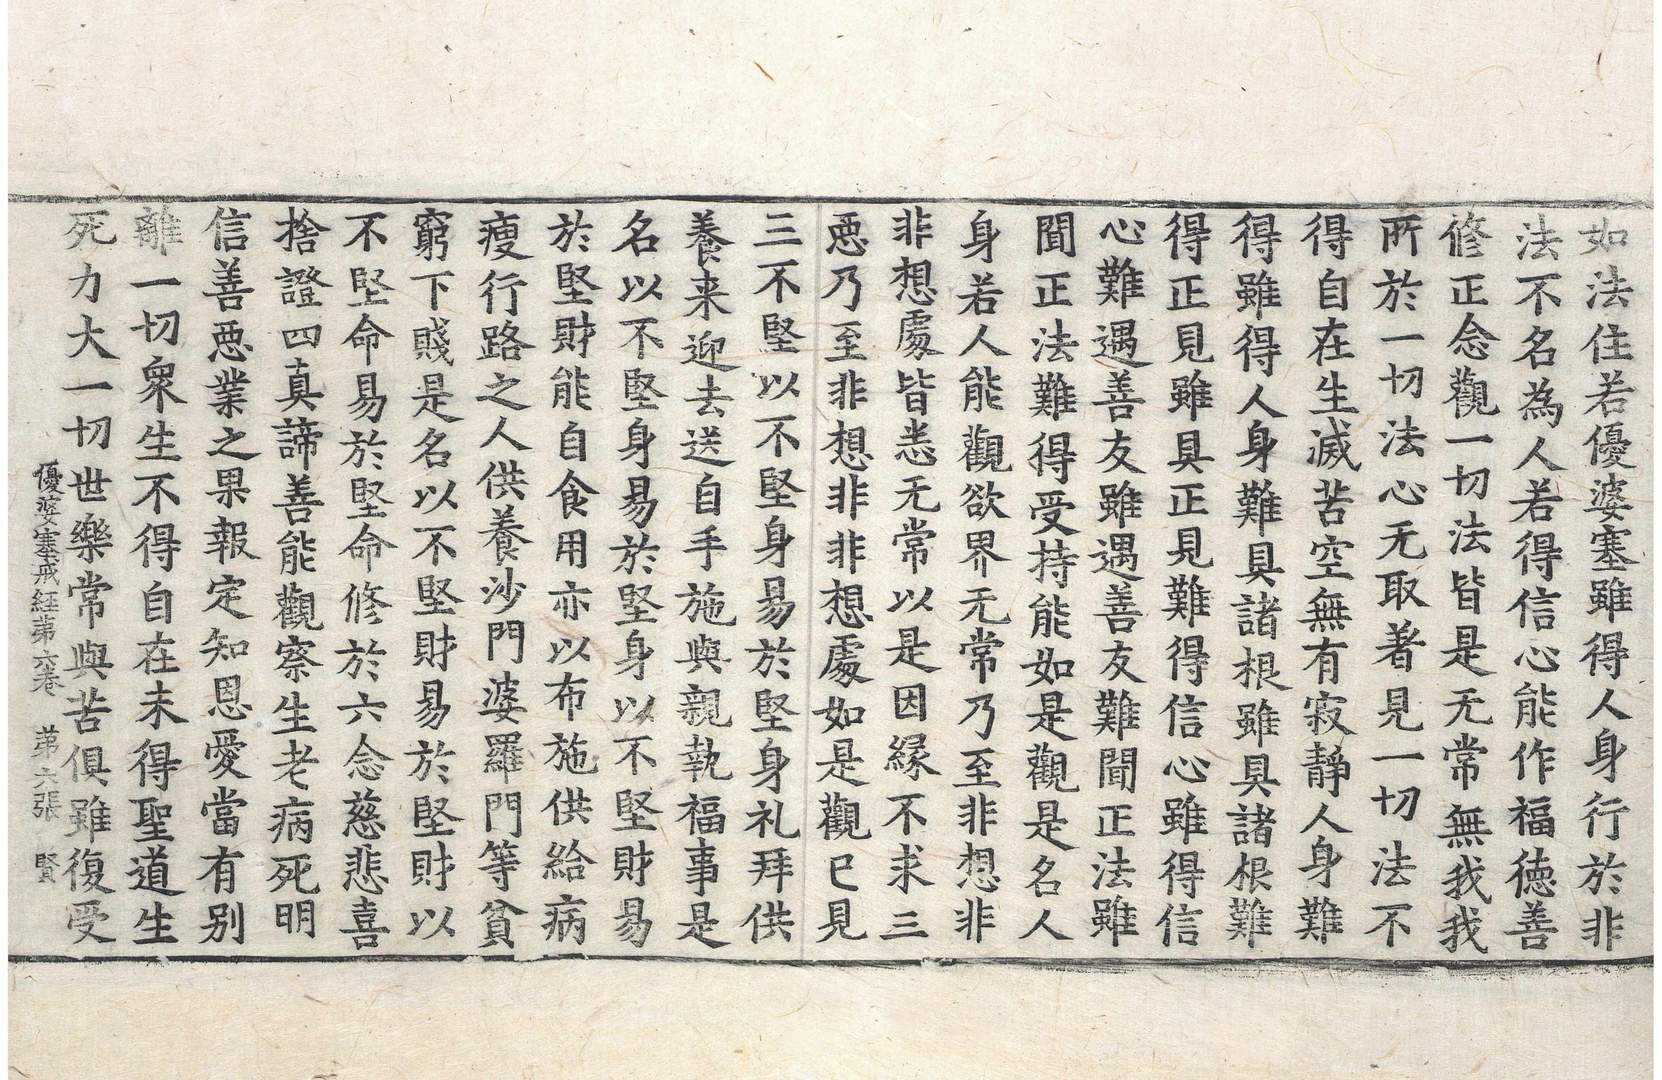 如法住若優婆塞雖得人身行於非
法不名為人若得信心能作福徳善
修正念觀一切法皆是无常無我我
所於一切法心无取著見一切法不
得自在生滅苦空無有寂靜人身難
得雖得人身難具諸根雖具諸根難
得正見雖具正見難得信心雖得信
心難遇善友雖遇善友難聞正法雖
聞正法難得受持能如是觀是名人
身若人能觀欲界无常乃至非想非
非想處皆悉无常以是因緣不求三
惡乃至非想非非想處如是觀已見
三不堅以不堅身易於堅身礼拜供
養来迎去送自手施與親執福事是
名以不堅身易於堅身以不堅財易
於堅財能自食用亦以布施供給病
瘦行路之人供養沙門婆羅門等貧
窮下賤是名以不堅財易於堅財以
不堅命易於堅命修於六念慈悲喜
捨證四真諦善能觀察生老病死明
信善惡業之果報定知恩愛當有別
離一切衆生不得自在未得聖道生
死力大一切世樂常與苦俱雖復受
優婆塞戒経第六卷 第六張 賢